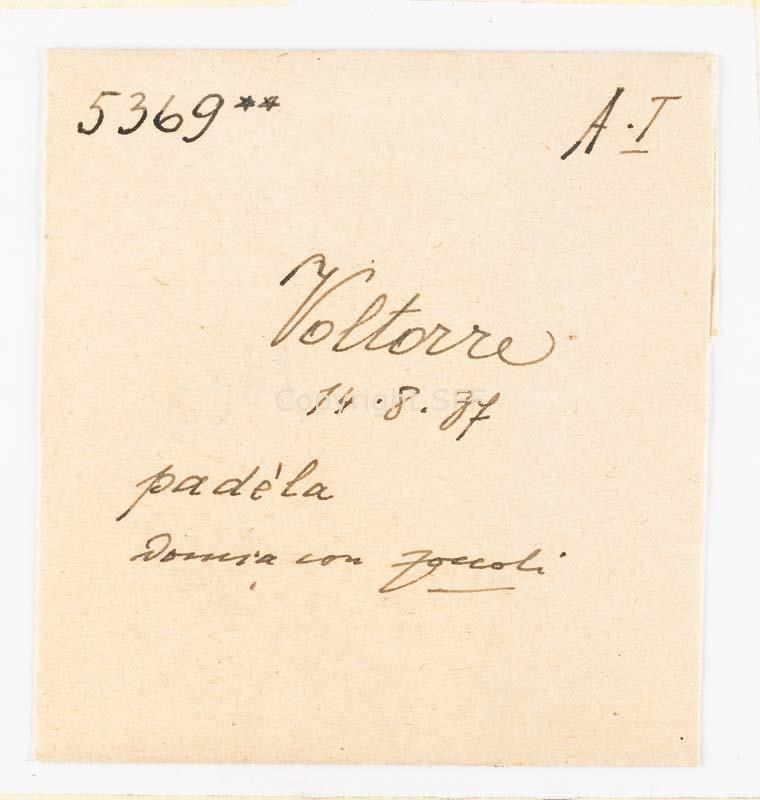 5369** A.I
Voltorre
14.8.37
padèla
Donna con zoccoli